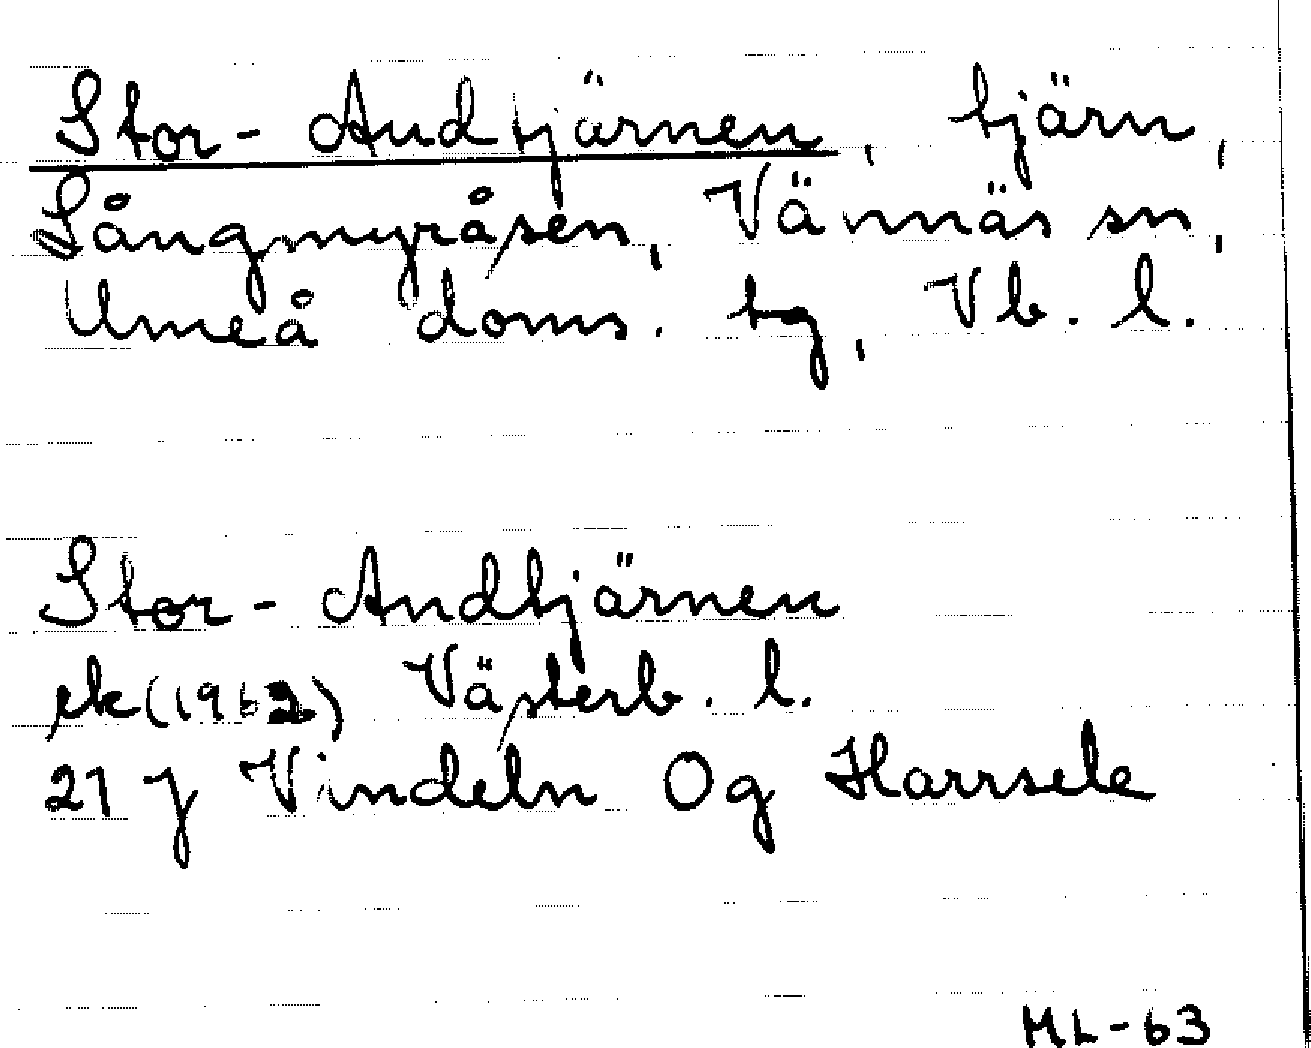 Stor-Andtjärnen, tjärn,
Långmyråsen, Vännäs sn,
Umeå doms. tg, Vb. l.
Stor-Andtjärnen
ek (1962) Västerb. l.
21 J Vindeln 0g Harrsele
ML-63